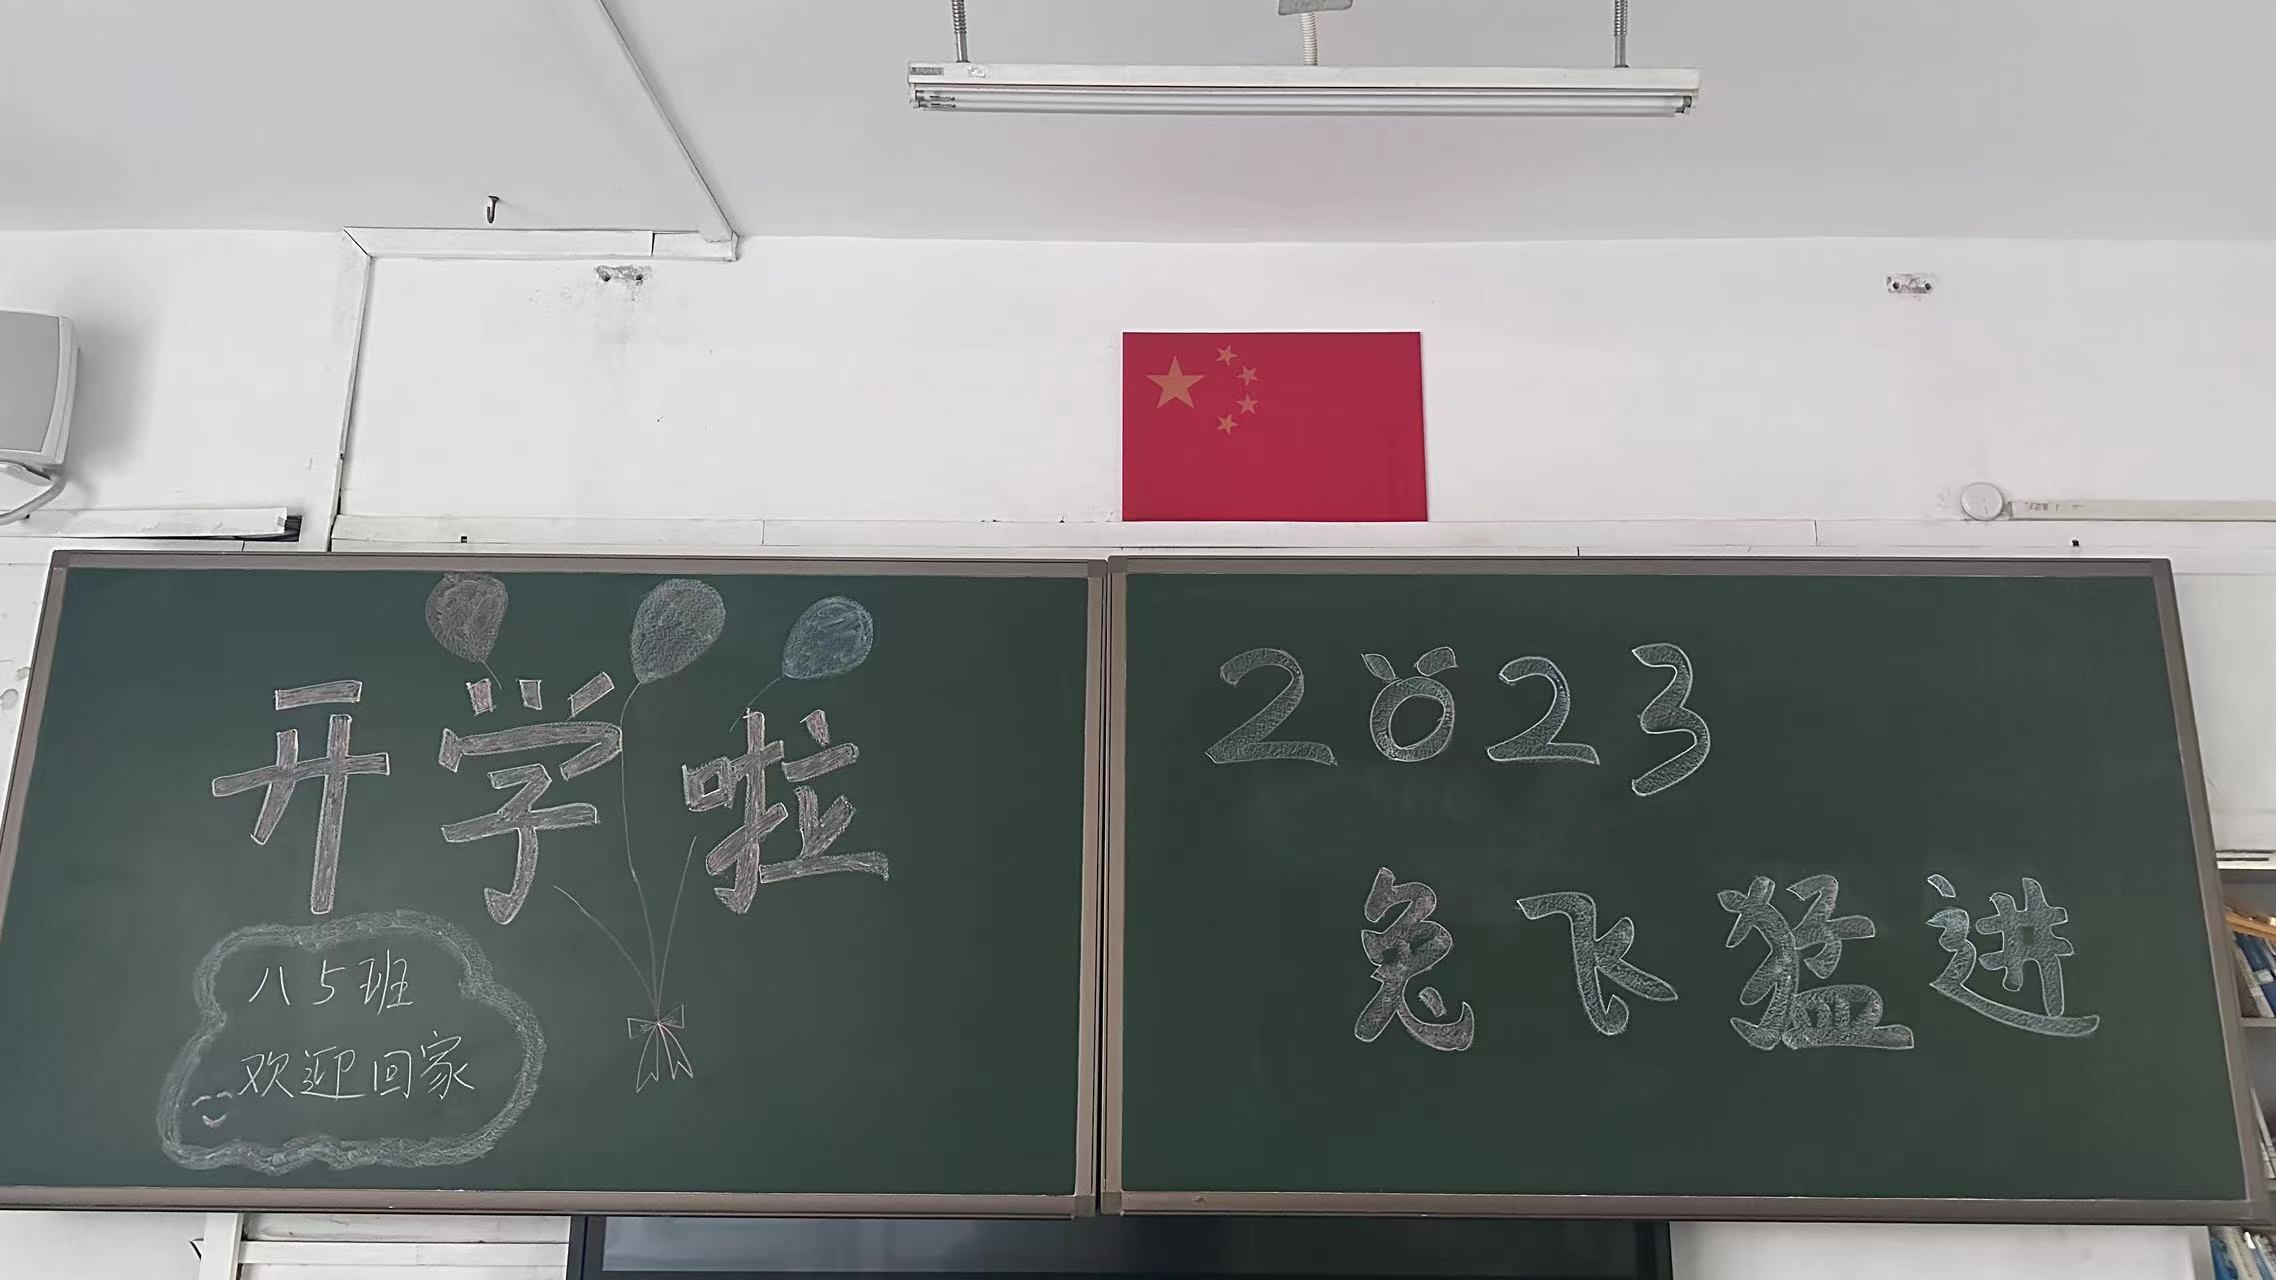 开学啦
八5班
欢迎回家
2023
兔飞猛进